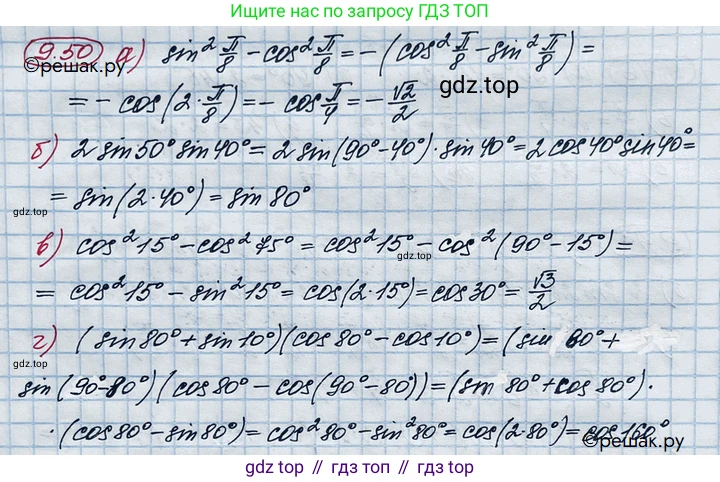 Ищите нас по запросу ГДЗ ТОП
9.50 а) sin² π/8 - cos² π/8 = -(cos² π/8 - sin² π/8) =
©решак.ру
gdz.top
= - cos(2·π/8) = - cos π/4 = - √2/2
б) 2 sin50° sin40° = 2 sin(90°-40°)·sin 40° = 2 cos40° sin40° =
= sin(2·40°) = sin 80°
gdz.top
в) cos²15° - cos²75° = cos²15° - cos²(90°-15°) =
gdz.top
= cos²15° - sin²15° = cos(2·15°) = cos30° = √3/2
г) (sin80° + sin10°)(cos80° - cos10°) = (sin 80° +
gdz.top
sin(90°-80°)(cos80° - cos(90°-80°)) = (sin 80° + cos 80°)·
·(cos80° - sin80°) = cos²80° - sin²80° = cos(2·80°) = cos160°
©решак.ру
gdz top // гдз топ // gdz.top // гдз.топ